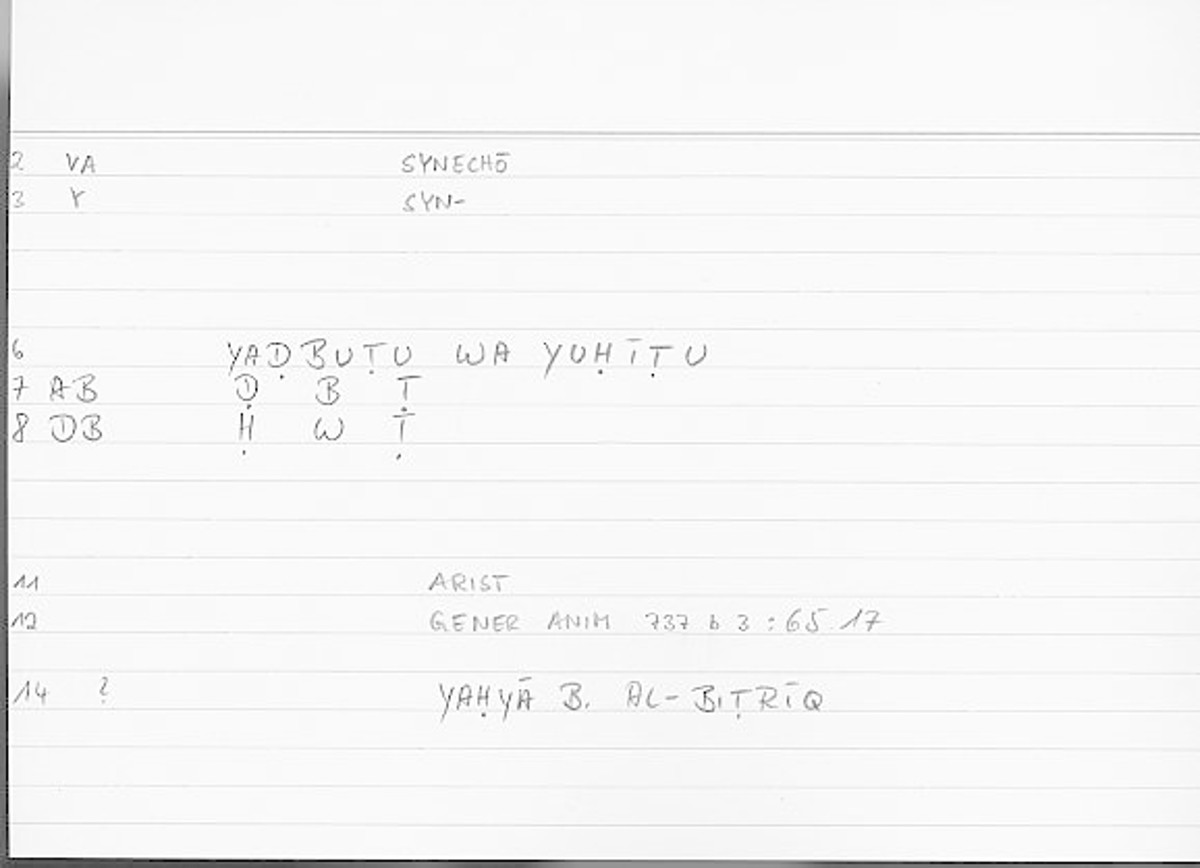 2 VA SYNECHŌ
3 Y SYN-
6 YAḌBUṬU WA YUḤĪṬU
7 AB Ḍ B Ṭ
8 DB Ḥ W Ṭ
11 ARIST
12 GENER ANIM 737 b 3 : 65 17
14 ? YAḤYĀ B. AL-BIṬRĪQ